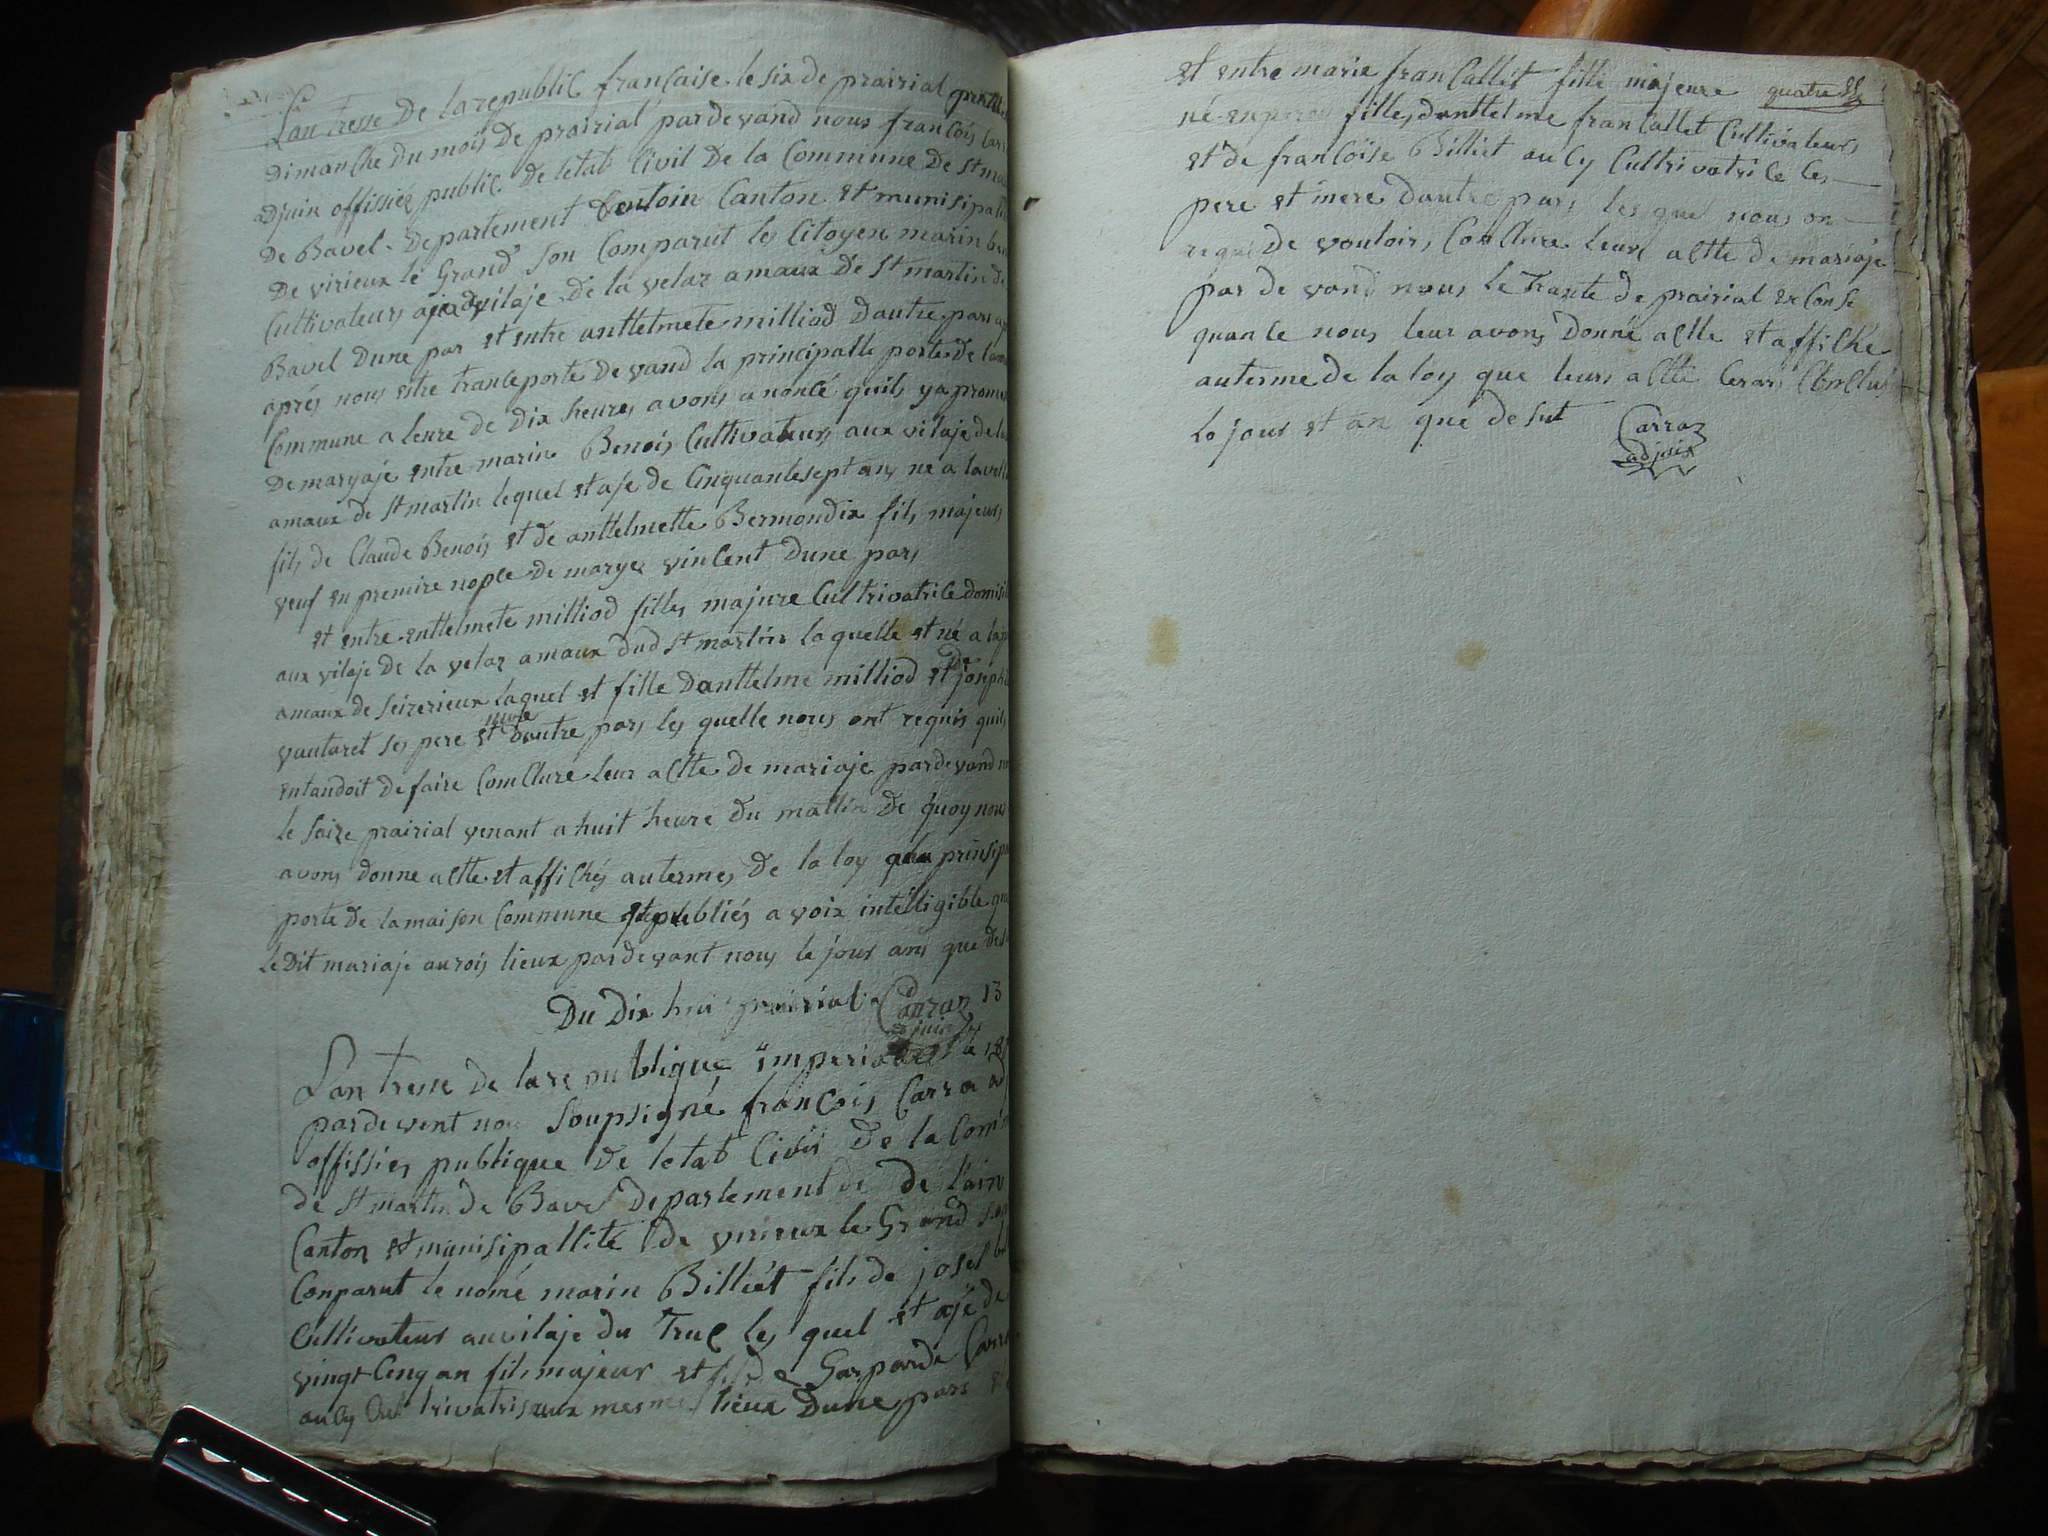 Lan tresse De la republic française le six de prairial
Dimanche du mois de prairial pardevand nous françois
adjuin offissié public De letat Civil De la Commune De St
De Bavel Departement Canton et munisipa
De virieux le Grand Son Comparut les Citoyen marin
Cultivateurs vilaje De la velaz amaux de St martin de
Bavel Dune par et entre anttelmete milliod Dautre pars
aprés nous estre transeporte De vand la principalle porte de
Commune a leure de Dix heures avons anoncé quils ya prome
De maryaje entre marin Benois Cultivateurs aux vilaje de la
amaux de St martin lequel et aje de Cinquantesept ans né a la
fils de Claude Benois et de anttelmette Bermondix fils majeurs
veuf en premire nopce de marye vincent Dune pars
et entre enttelmete milliod filles majure Cultrivatrice
aux vilaje de la velaz amaux dud St martin laquelle et né a
amaux de seizerieux laquel et fille Danttelme milliod et de joseph
vautaret ses pere et mere Dautre pars les quelle nous ont requis quils
entandoit de faire Comclure leur altte de mariaje pardevand
le saize prairial venant a huit heure du mattin De quoy nous
avons donne altte et affichés autermes De la loy prinsip
porte de lamaison Commune et publiés a voix intélligible que
le Dit mariaje aurois lieux pardevant nous le jour ans que
Du Dix hui prairial Carraz 13
adjuin
Lan tresse de la republique imperiale le 18
pardevent nous soupsigné françois Carra
offissies publique De letat Civis De la Com
de St martin de Bavel Departement de De l'ain
Canton et munisipallité de virieux le Grand
Conparut le nomé marin Billiét fils de josef
Cultivateur auvilaje du Truc les quel et ajé de
vingt cinq an fils majeur et fils de Gasparde
aucy Cultrivatris aux mesme lieux Dune pars
et entre marie fran Callet fille majeure quatre
né fille danttelme fran Callet Cultivateurs
et de francoise Billiet aucy Cultrivatrice les
pere et mere Dautre pars les quel nous on
requi de vouloirs Conclure leurs altte de mariaje
par de vand nous le Trante de prairial en Conse
quance nous leur avons Donné altte et affiche
auterme de la loy que leurs altte
le jour et an que desut Carraz
adjuin